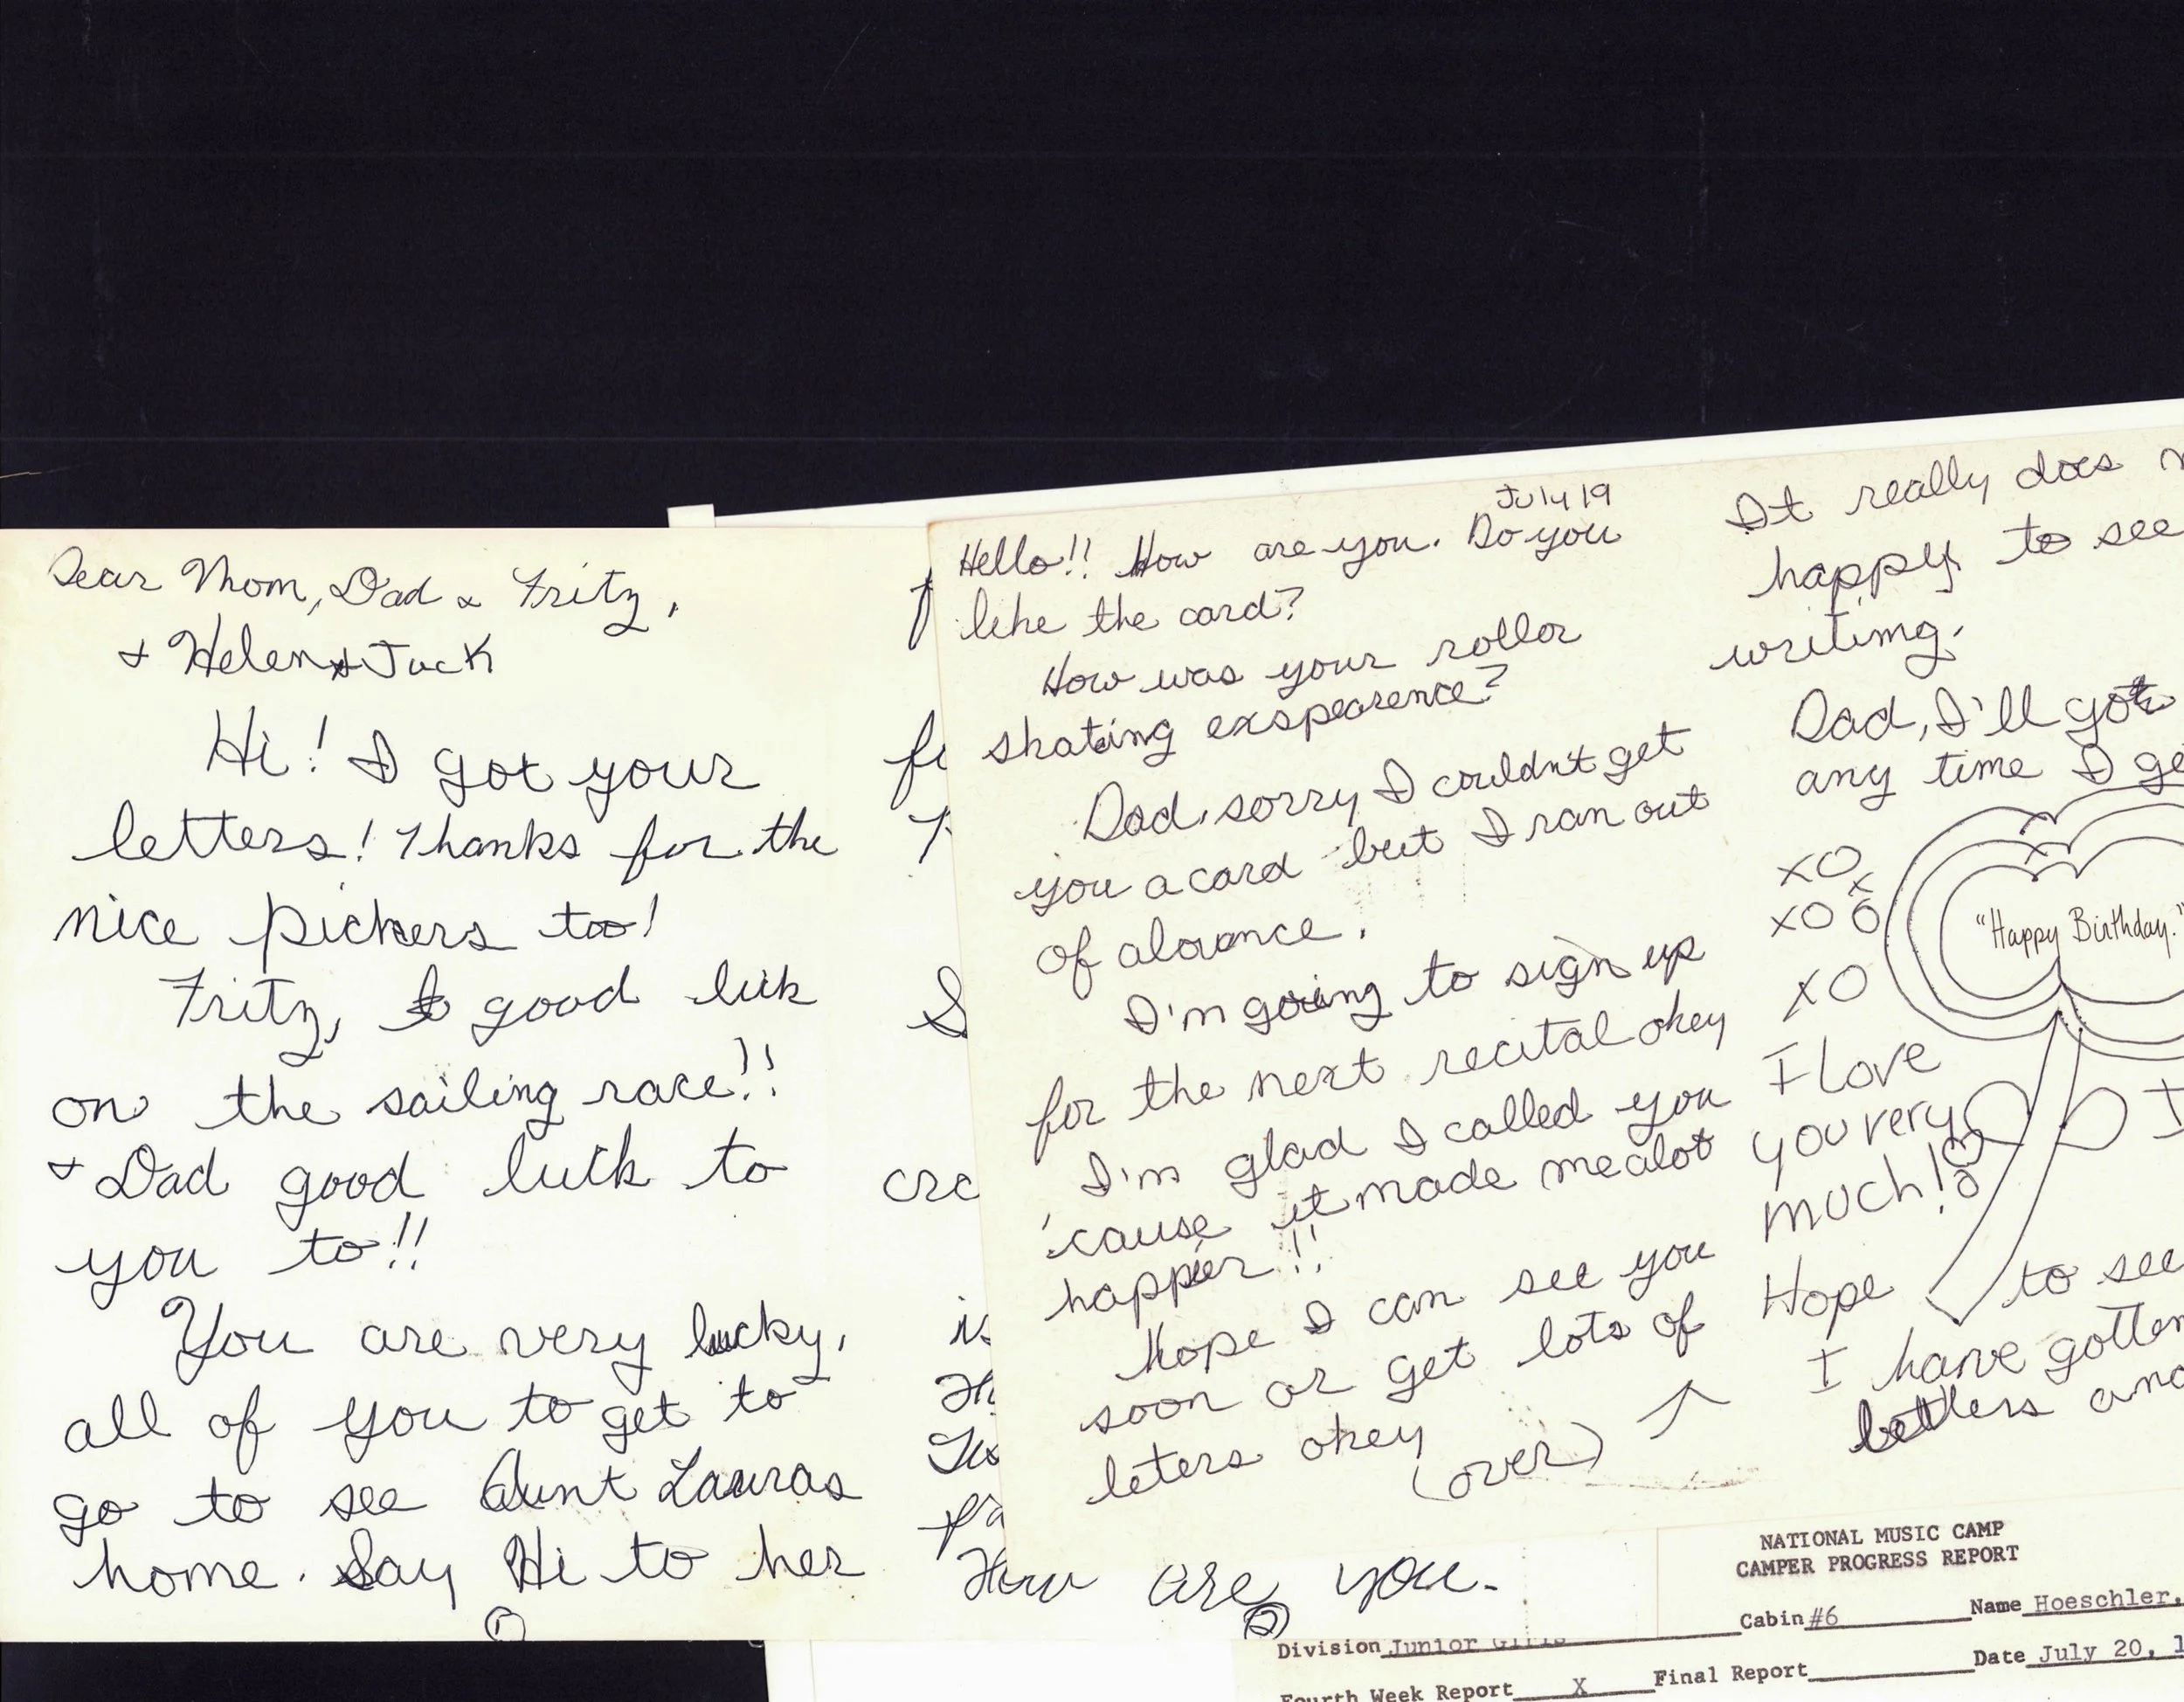 Dear Mom, Dad & Fritz,
& Helen & Jack
Hi! I got your
letters! Thanks for the
nice pickers too!
Fritz, good luck
on the sailing race!!
& Dad good luck to
you to!!
You are very lucky,
all of you to get to
go to see Aunt Lauras
home. Say Hi to her
1
cre
is
How are you.
2
July 19
Hello!! How are you. Do you
like the card?
How was your roller
skating exspearence?
Dad, sorry I couldn't get
you a card but I ran out
of alovance.
I'm going to sign up
for the next recital okey
I'm glad I called you
'cause it made me alot
happier!!
Hope I can see you
soon or get lots of
leters okey
(over)
It really does
happy to see
writimg.
Dad, I'll got
any time I ge
XO
X
XO O
XO
"Happy Birthday."
I love
you very
much!
I
Hope to see
I have gotten
letters and
NATIONAL MUSIC CAMP
CAMPER PROGRESS REPORT
Cabin #6 Name Hoeschler,
Division Junior Girls
Date July 20, 1
Fourth Week Report X Final Report